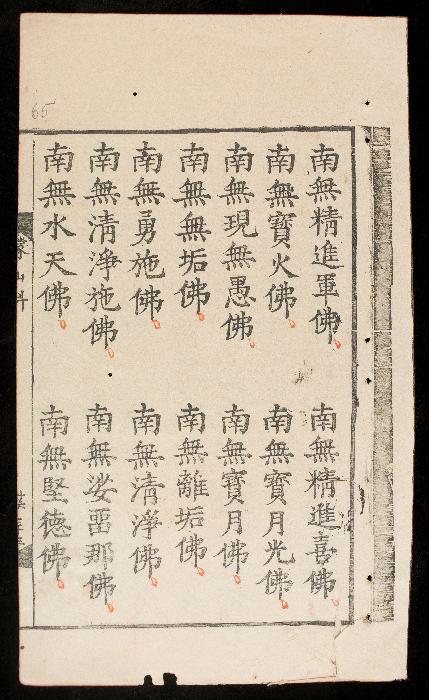 南無精進軍佛 南無精進喜佛
南無寶火佛 南無寶月光佛
南無現無愚佛 南無寶月佛
南無無垢佛 南無離垢佛
南無勇施佛 南無清淨佛
南無清淨施佛 南無娑畱那佛
南無水天佛 南無堅德佛
蒙山科
65